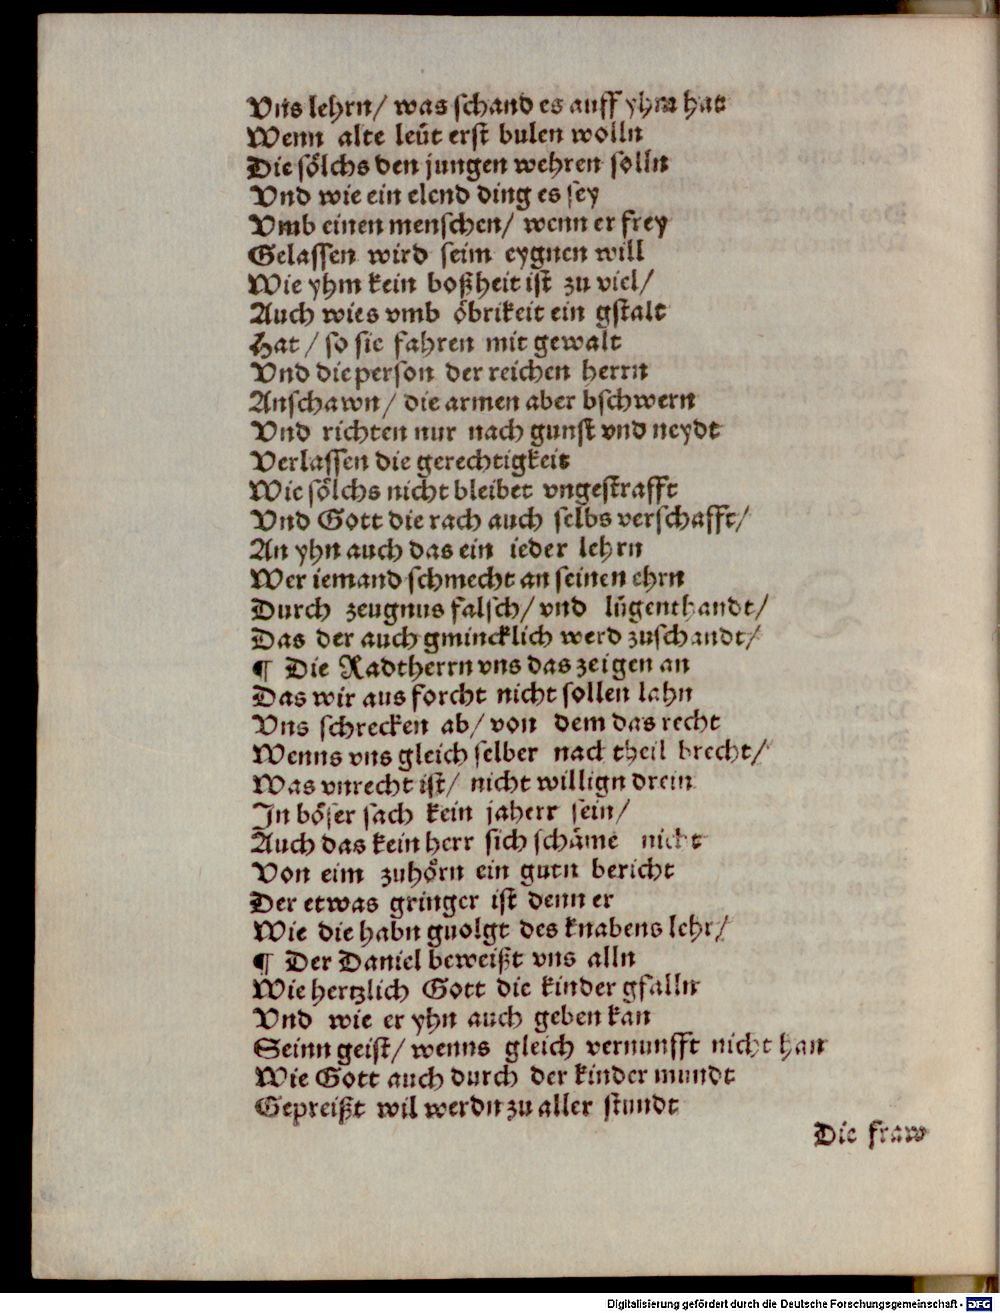 Vns lehrn/ was schand es auff yhm hat
Wenn alte leüt erst bulen wolln
Die sölchs den jungen wehren solln
Vnd wie ein elend ding es sey
Vmb einen menschen/ wenn er frey
Gelassen wird seim eygnen will
Wie yhm kein boßheit ist zu viel/
Auch wies vmb öbrikeit ein gstalt
Hat/ so sie fahren mit gewalt
Vnd die person der reichen herrn
Anschawn/ die armen aber bschwern
Vnd richten nur nach gunst vnd neydt
Verlassen die gerechtigkeit
Wie sölchs nicht bleibet vngestrafft
Vnd Gott die rach auch selbs verschafft/
An yhn auch das ein ieder lehrn
Wer iemand schmecht an seinen ehrn
Durch zeugnus falsch/ vnd lügenthandt/
Das der auch gmincklich werd zuschandt/
¶ Die Radtherrn vns das zeigen an
Das wir aus forcht nicht sollen lahn
Vns schrecken ab/ von dem das recht
Wenns vns gleich selber nachtheil brecht/
Was vnrecht ist/ nicht willign drein
In böser sach kein jaherr sein/
Auch das kein herr sich schäme nicht
Von eim zuhörn ein gutn bericht
Der etwas gringer ist denn er
Wie die habn guolgt des knabens lehr/
¶ Der Daniel beweißt vns alln
Wie hertzlich Gott die kinder gfalln
Vnd wie er yhn auch geben kan
Seinn geist/ wenns gleich vernunfft nicht han
Wie Gott auch durch der kinder mundt
Gepreißt wil werdn zu aller stundt
Die fraw
Digitalisierung gefördert durch die Deutsche Forschungsgemeinschaft - DFG